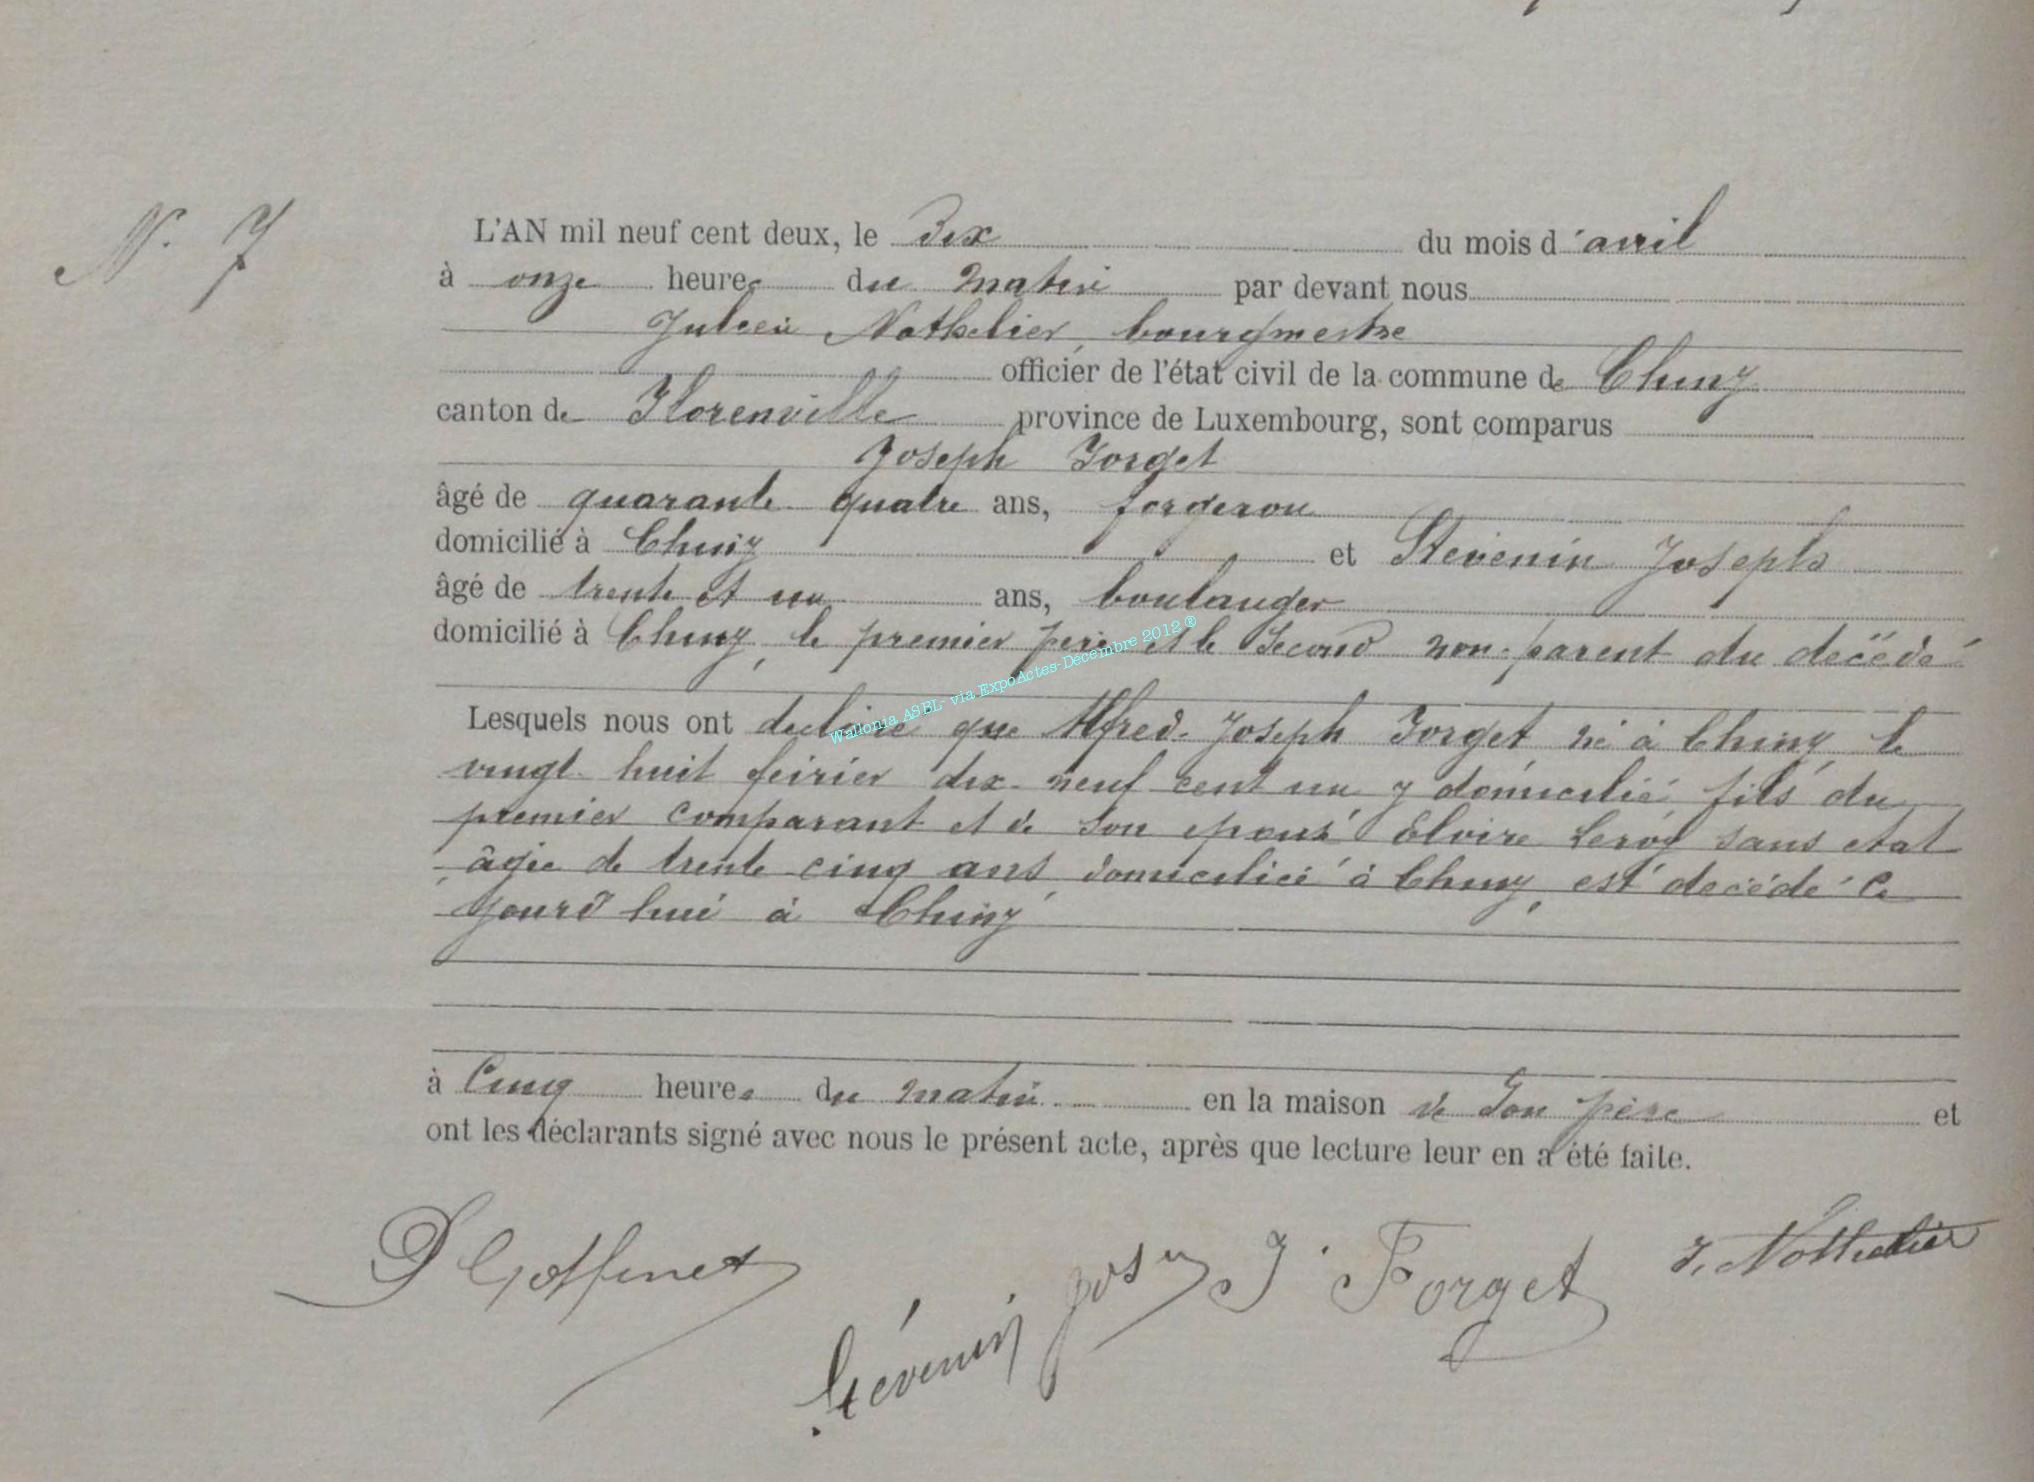 N. 7
L'AN mil neuf cent deux, le Dix du mois d'avril
à onze heures du matin par devant nous
Julien Nothelier, bourgmestre
officier de l'état civil de la commune de Chiny
canton de Florenville province de Luxembourg, sont comparus
Joseph Forget
âgé de quarante quatre ans, forgeron
domicilié à Chiny et Stévenin Joseph
âgé de trente et un ans, boulanger
domicilié à Chiny, le premier père et le second non-parent du décédé
Lesquels nous ont declaré que Alfred-Joseph Forget né à Chiny, le
vingt-huit février dix-neuf cent un, y domicilié fils du
premier comparant et de son épouse Elvire Leroy sans état
âgée de trente cinq ans, domiciliée à Chiny, est décédé ce
jourd'hui à Chiny
à Cinq heures du matin en la maison de son père et
ont les déclarants signé avec nous le présent acte, après que lecture leur en a été faite.
J. Nothelier
J. Forget
Stévenin
Wallonia ASBL- via ExpoActes-Decembre 2012 ®